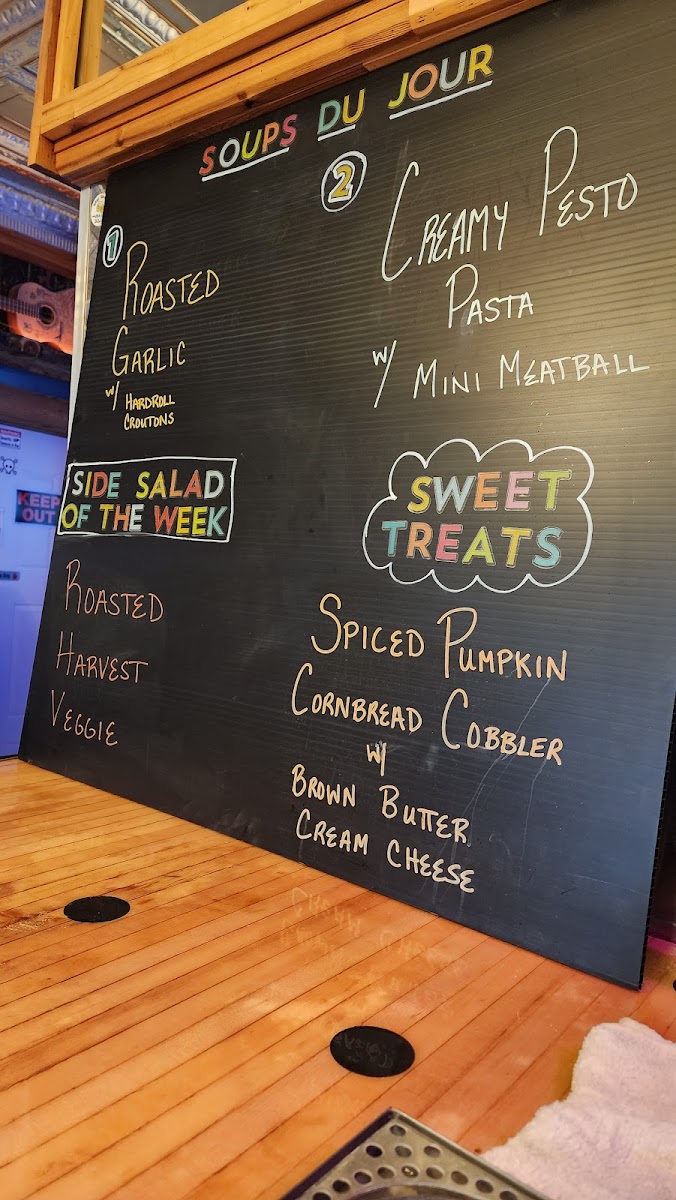 SOUPS DU JOUR
1
ROASTED
GARLIC
w/ HARDROLL
CROUTONS
2
CREAMY PESTO
PASTA
w/ MINI MEATBALL
SIDE SALAD
OF THE WEEK
ROASTED
HARVEST
VEGGIE
SWEET
TREATS
SPICED PUMPKIN
CORNBREAD COBBLER
w/
BROWN BUTTER
CREAM CHEESE
KEEP
OUT